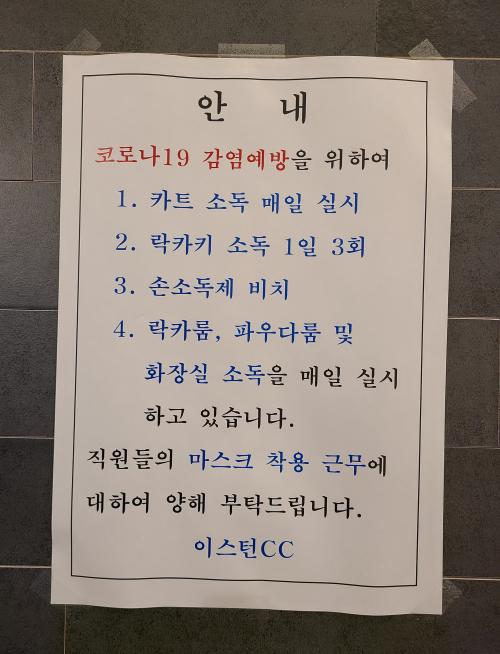 안 내
코로나19 감염예방을 위하여
1. 카트 소독 매일 실시
2. 락카키 소독 1일 3회
3. 손소독제 비치
4. 락카룸, 파우다룸 및
화장실 소독을 매일 실시
하고 있습니다.
직원들의 마스크 착용 근무에
대하여 양해 부탁드립니다.
이스턴CC